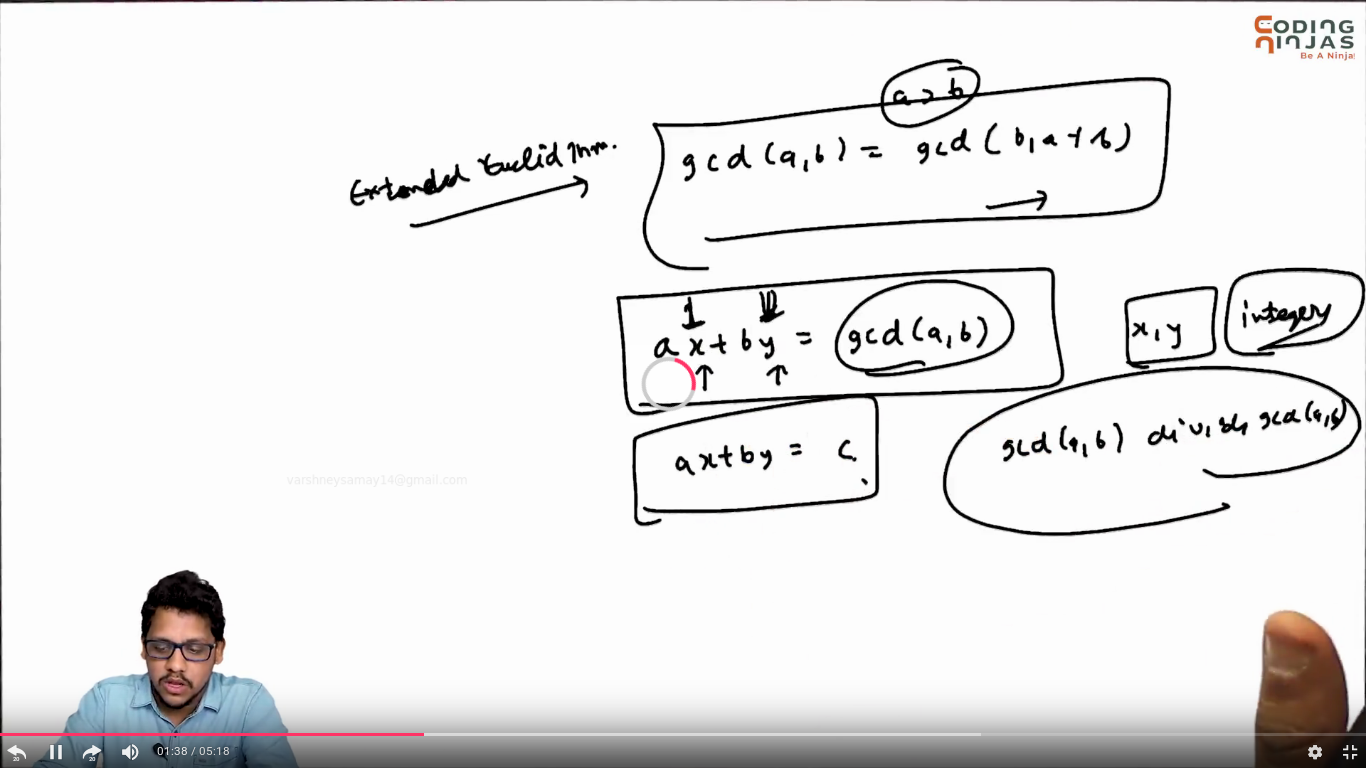 CODING
NINJAS
Be A Ninja!
a > b
Extended Euclid Thm.
gcd(a,b) = gcd(b,a%b)
ax+by = gcd(a,b)
x,y
integers
ax+by = c.
gcd(a,b) divides gcd(a,b)
varshneysamay14@gmail.com
20
20
01:38 / 05:18